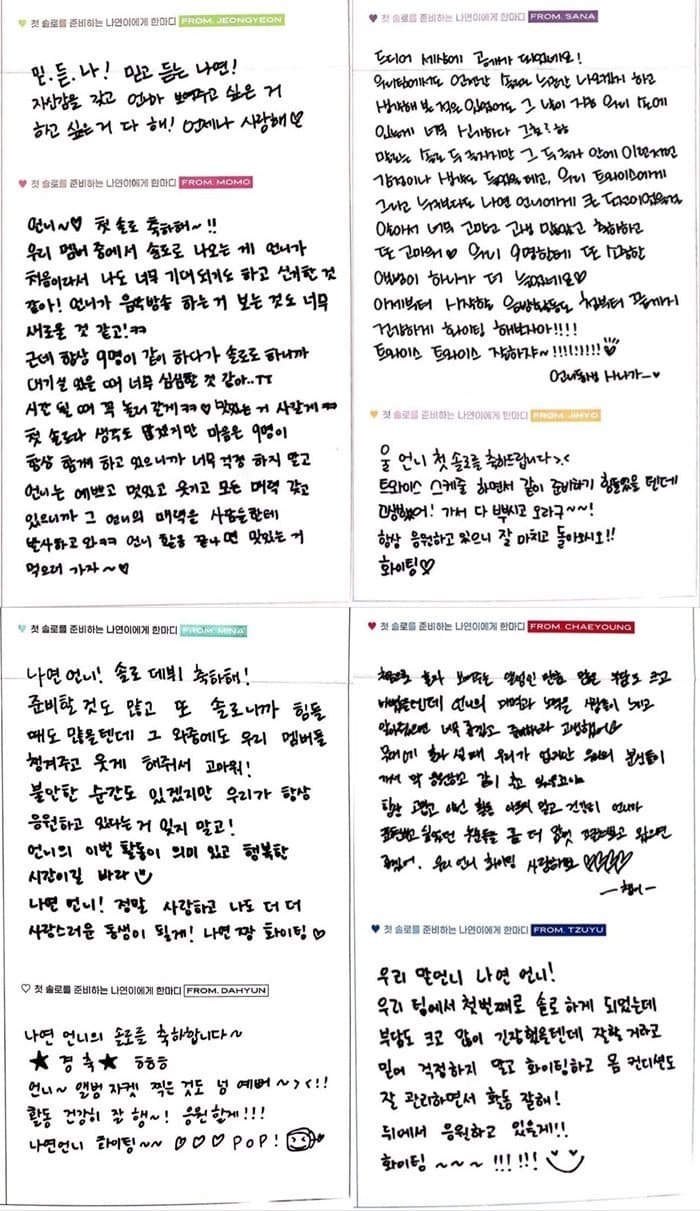 ♥ 첫 솔로를 준비하는 나연이에게 한마디 FROM. JEONGYEON
믿.듣.나! 믿고 듣는 나연!
자신감을 갖고 언니가 보여주고 싶은 거
하고 싶은 거 다 해! 언제나 사랑해♡
♥ 첫 솔로를 준비하는 나연이에게 한마디 FROM. MOMO
언니~♡ 첫 솔로 축하해~!!
우리 멤버 중에서 솔로로 나오는 게 언니가
처음이라서 나도 너무 기대되기도 하고 신기한 것
같아! 언니가 음악방송 하는 거 보는 것도 너무
새로울 것 같고!ㅋㅋ
근데 항상 9명이 같이 하다가 솔로로 하니까
대기실 있을 때 너무 심심할 것 같아..ㅠㅠ
시간 될 때 꼭 놀러 갈게ㅋㅋ♡ 맛있는 거 사갈게ㅋㅋ
첫 솔로라 생각도 많겠지만 마음은 9명이
항상 함께 하고 있으니까 너무 걱정 하지 말고
언니는 예쁘고 멋있고 웃기고 모든 매력 갖고
있으니까 그 언니의 매력을 사람들한테
발사하고 와ㅋㅋ 언니 활동 끝나면 맛있는 거
먹으러 가자~♡
♥ 첫 솔로를 준비하는 나연이에게 한마디 FROM. SANA
드디어 세상에 공개가 되었네요!
우리팀에서도 언젠간 솔로로 누군간 나오겠지 하고
생각해 본 적은 있었어도 그 날이 지금 우리 눈에
있는게 너무 신기하다 그치?ㅎㅎ
그리고 누구보다도 나연 언니에게 큰 도전이었을거
알아서 너무 고맙고 고생 많았고 축하하고
또 고마워♡ 우리 9명한테 또 소중한
앨범이 하나가 더 늘었네요♡
이제부터 시작할 음방활동도 처음부터 끝까지
건강하게 화이팅 해보자아!!!!
트와이스 트와이스 잡하쟈~!!!!!!!!!♥
언니동생 사나가-♥
♥ 첫 솔로를 준비하는 나연이에게 한마디 FROM. JIHYO
울 언니 첫 솔로를 축하드립니다>.<
트와이스 스케줄 하면서 같이 준비하기 힘들었을 텐데
고생했어! 가서 다 뿌시고 오라구~~!
항상 응원하고 있으니 잘 마치고 돌아와시오!!
화이팅♡
♥ 첫 솔로를 준비하는 나연이에게 한마디 FROM. MINA
나연 언니! 솔로 데뷔 축하해!
준비할 것도 많고 또 솔로니까 힘들
때도 많을텐데 그 와중에도 우리 멤버들
챙겨주고 웃게 해줘서 고마워!
불안한 순간도 있겠지만 우리가 항상
응원하고 있다는 거 잊지 말고!
언니의 이번 활동이 의미 있고 행복한
시간이길 바라
나연 언니! 정말 사랑하고 나도 더 더
사랑스러운 동생이 될게! 나연 짱 화이팅♡
♡ 첫 솔로를 준비하는 나연이에게 한마디 FROM. DAHYUN
나연 언니의 솔로를 축하합니다~
★경축★ ㅎㅎㅎ
언니~ 앨범 자켓 찍은 것도 넘 예뻐~><!!
활동 건강히 잘 행~! 응원할게!!!
나연언니 화이팅~~ ♡♡♡ POP!
♥ 첫 솔로를 준비하는 나연이에게 한마디 FROM. CHAEYOUNG
혼자 보여주는 앨범인 만큼 많은 부담도 크고
언니의 매력과 노력을 사람들이 느끼고
너무 즐겁고 준비하느라 고생했어♡
무대에 혼자 설 때 우리가 없지만
힘찬 이번 활동 아프지 말고 건강히 언니가
좀 더
우리 언니 화이팅 사랑하고 ♡♡♡♡
♥ 첫 솔로를 준비하는 나연이에게 한마디 FROM. TZUYU
우리 맏언니 나연 언니!
우리 팀에서 첫번째로 솔로 하게 되었는데
부담도 크고 많이 긴장했을텐데 잘할 거라고
믿어 걱정하지 말고 화이팅하고 몸 컨디션도
잘 관리하면서 활동 잘해!
뒤에서 응원하고 있을게!!
화이팅~~~!!! !!!